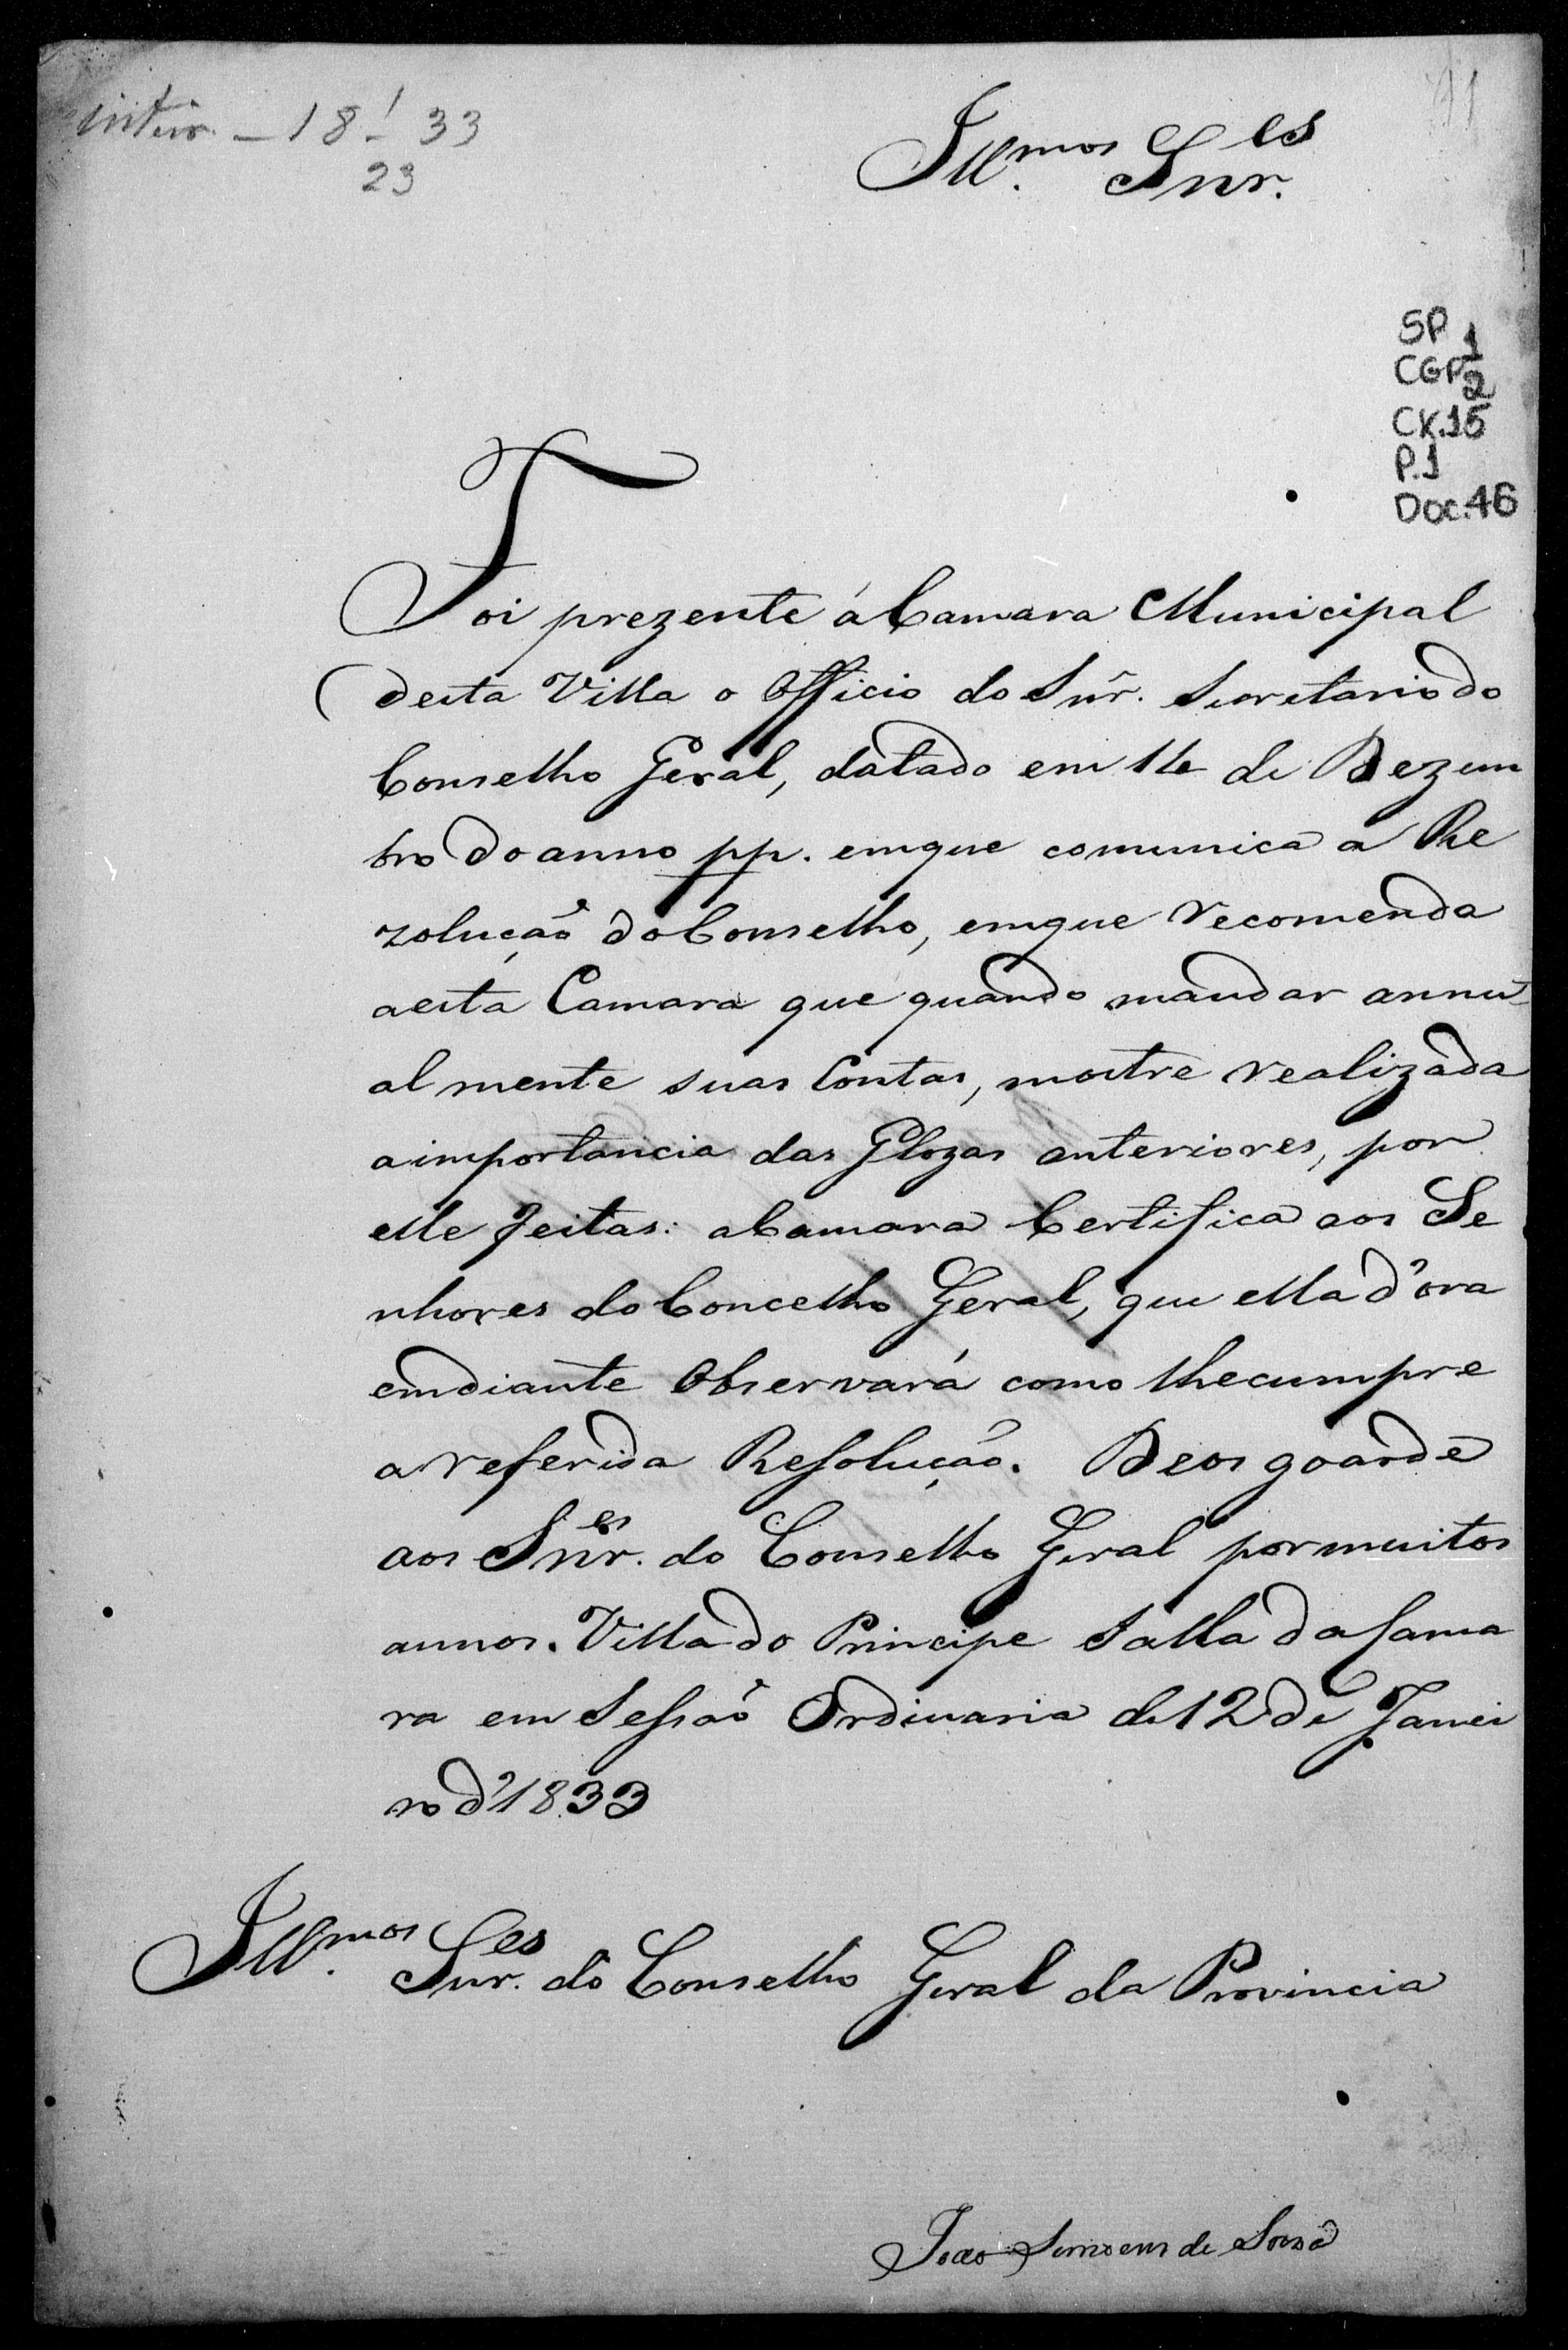 inteir. — 18 1 33
23
41
Ill.mos Snr.es
SP 1
CGP 2
CX.15
P.1
Doc.46
Foi prezente á Camara Municipal
desta Villa o Officio do Snr. Secretario do
Conselho Geral, datado em 16 de Dezem
bro do anno pp. emque comunica a Re
zolução do Conselho, emque recomenda
aesta Camara que quando mandar annu
al mente suas Contas, mostre realizada
aimportancia das Glozas anteriores, por
elle feitas: aCamara Certifica aos Se
nhores do Concelho Geral, que ella d'ora
emdiante Observará como lhecumpre
a referida Resolução. Deos goarde
aos Snr.es do Conselho Geral pormuitos
annos. Villa do Principe Salla da Cama
ra em Sessão Ordinaria de 12 de Janei
ro d'1833
Ill.mos Snr.es do Conselho Geral da Provincia
João de Souza